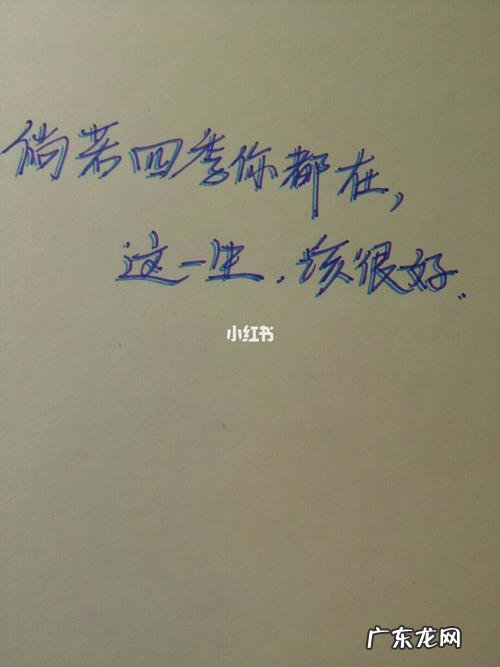 倘若四季你都在，
这一生，该很好.
小红书
广东龙网